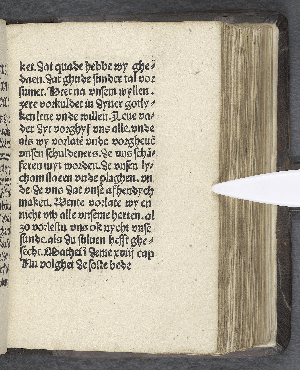 ket. dat quade hebbe wy ghe-
daen. dat ghude sunder tal vor
sumet. Here na vnsem wyllen.
sere vorkuldet in dyner gotly-
ken leue vnde willen. Leue va-
der dyt vorghyf vns alle. vnde
als wy vorlatē vnde vorgheuē
vnsen schuldeners. de vns schā-
feren vnt worden. de vnsen ly-
cham slaen vnde plaghen. vn
de de vns dat vnse afhendych
maken. Wente vorlate wy en
nicht vth alle vnseme herten. al
zo vorlestu vns ok nycht vnse
sunde. als du suluen hefft ghe-
secht. Mathei ī deme xviij cap
Nu volghet de soste bede